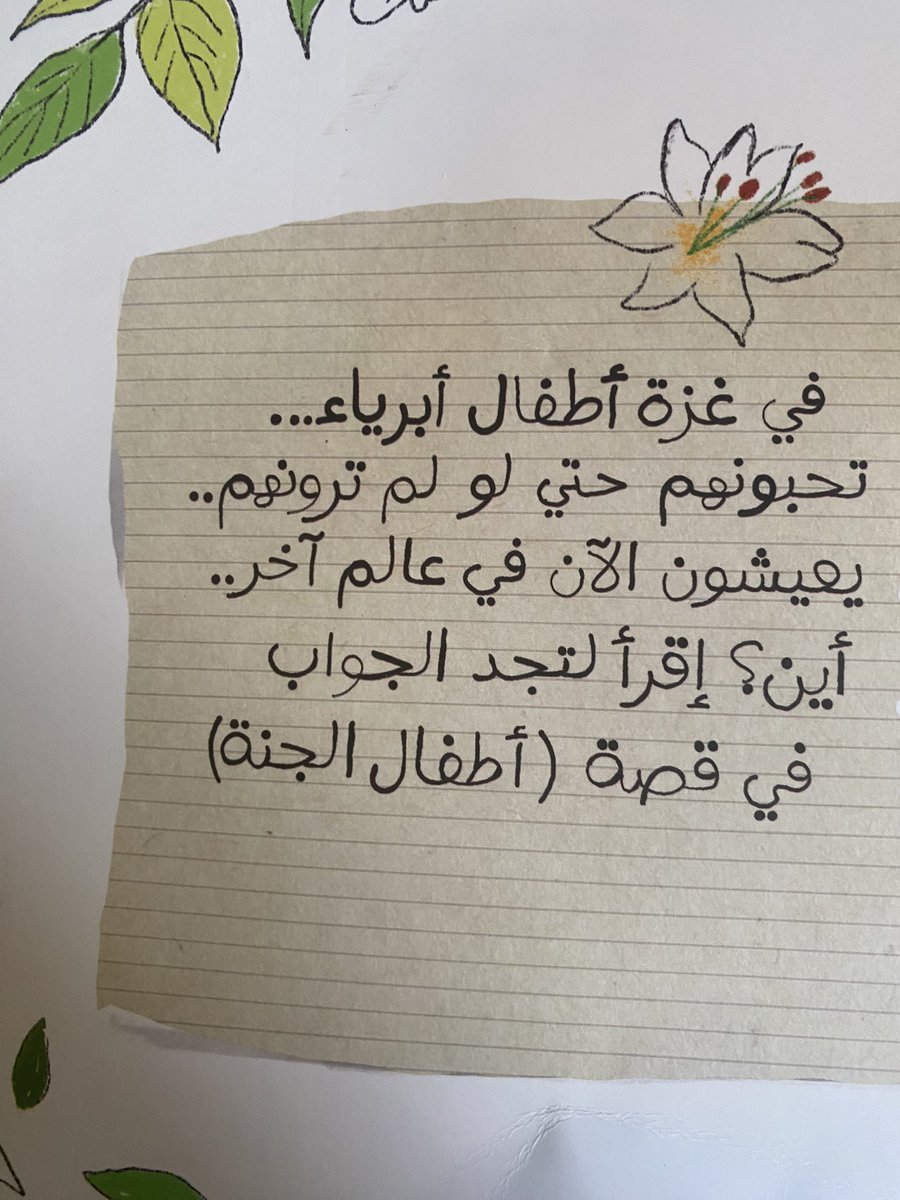 في غزة أطفال أبرياء...
تحبونهم حتي لو لم ترونهم..
يعيشون الآن في عالم آخر..
أين؟ إقرأ لتجد الجواب
في قصة (أطفال الجنة)